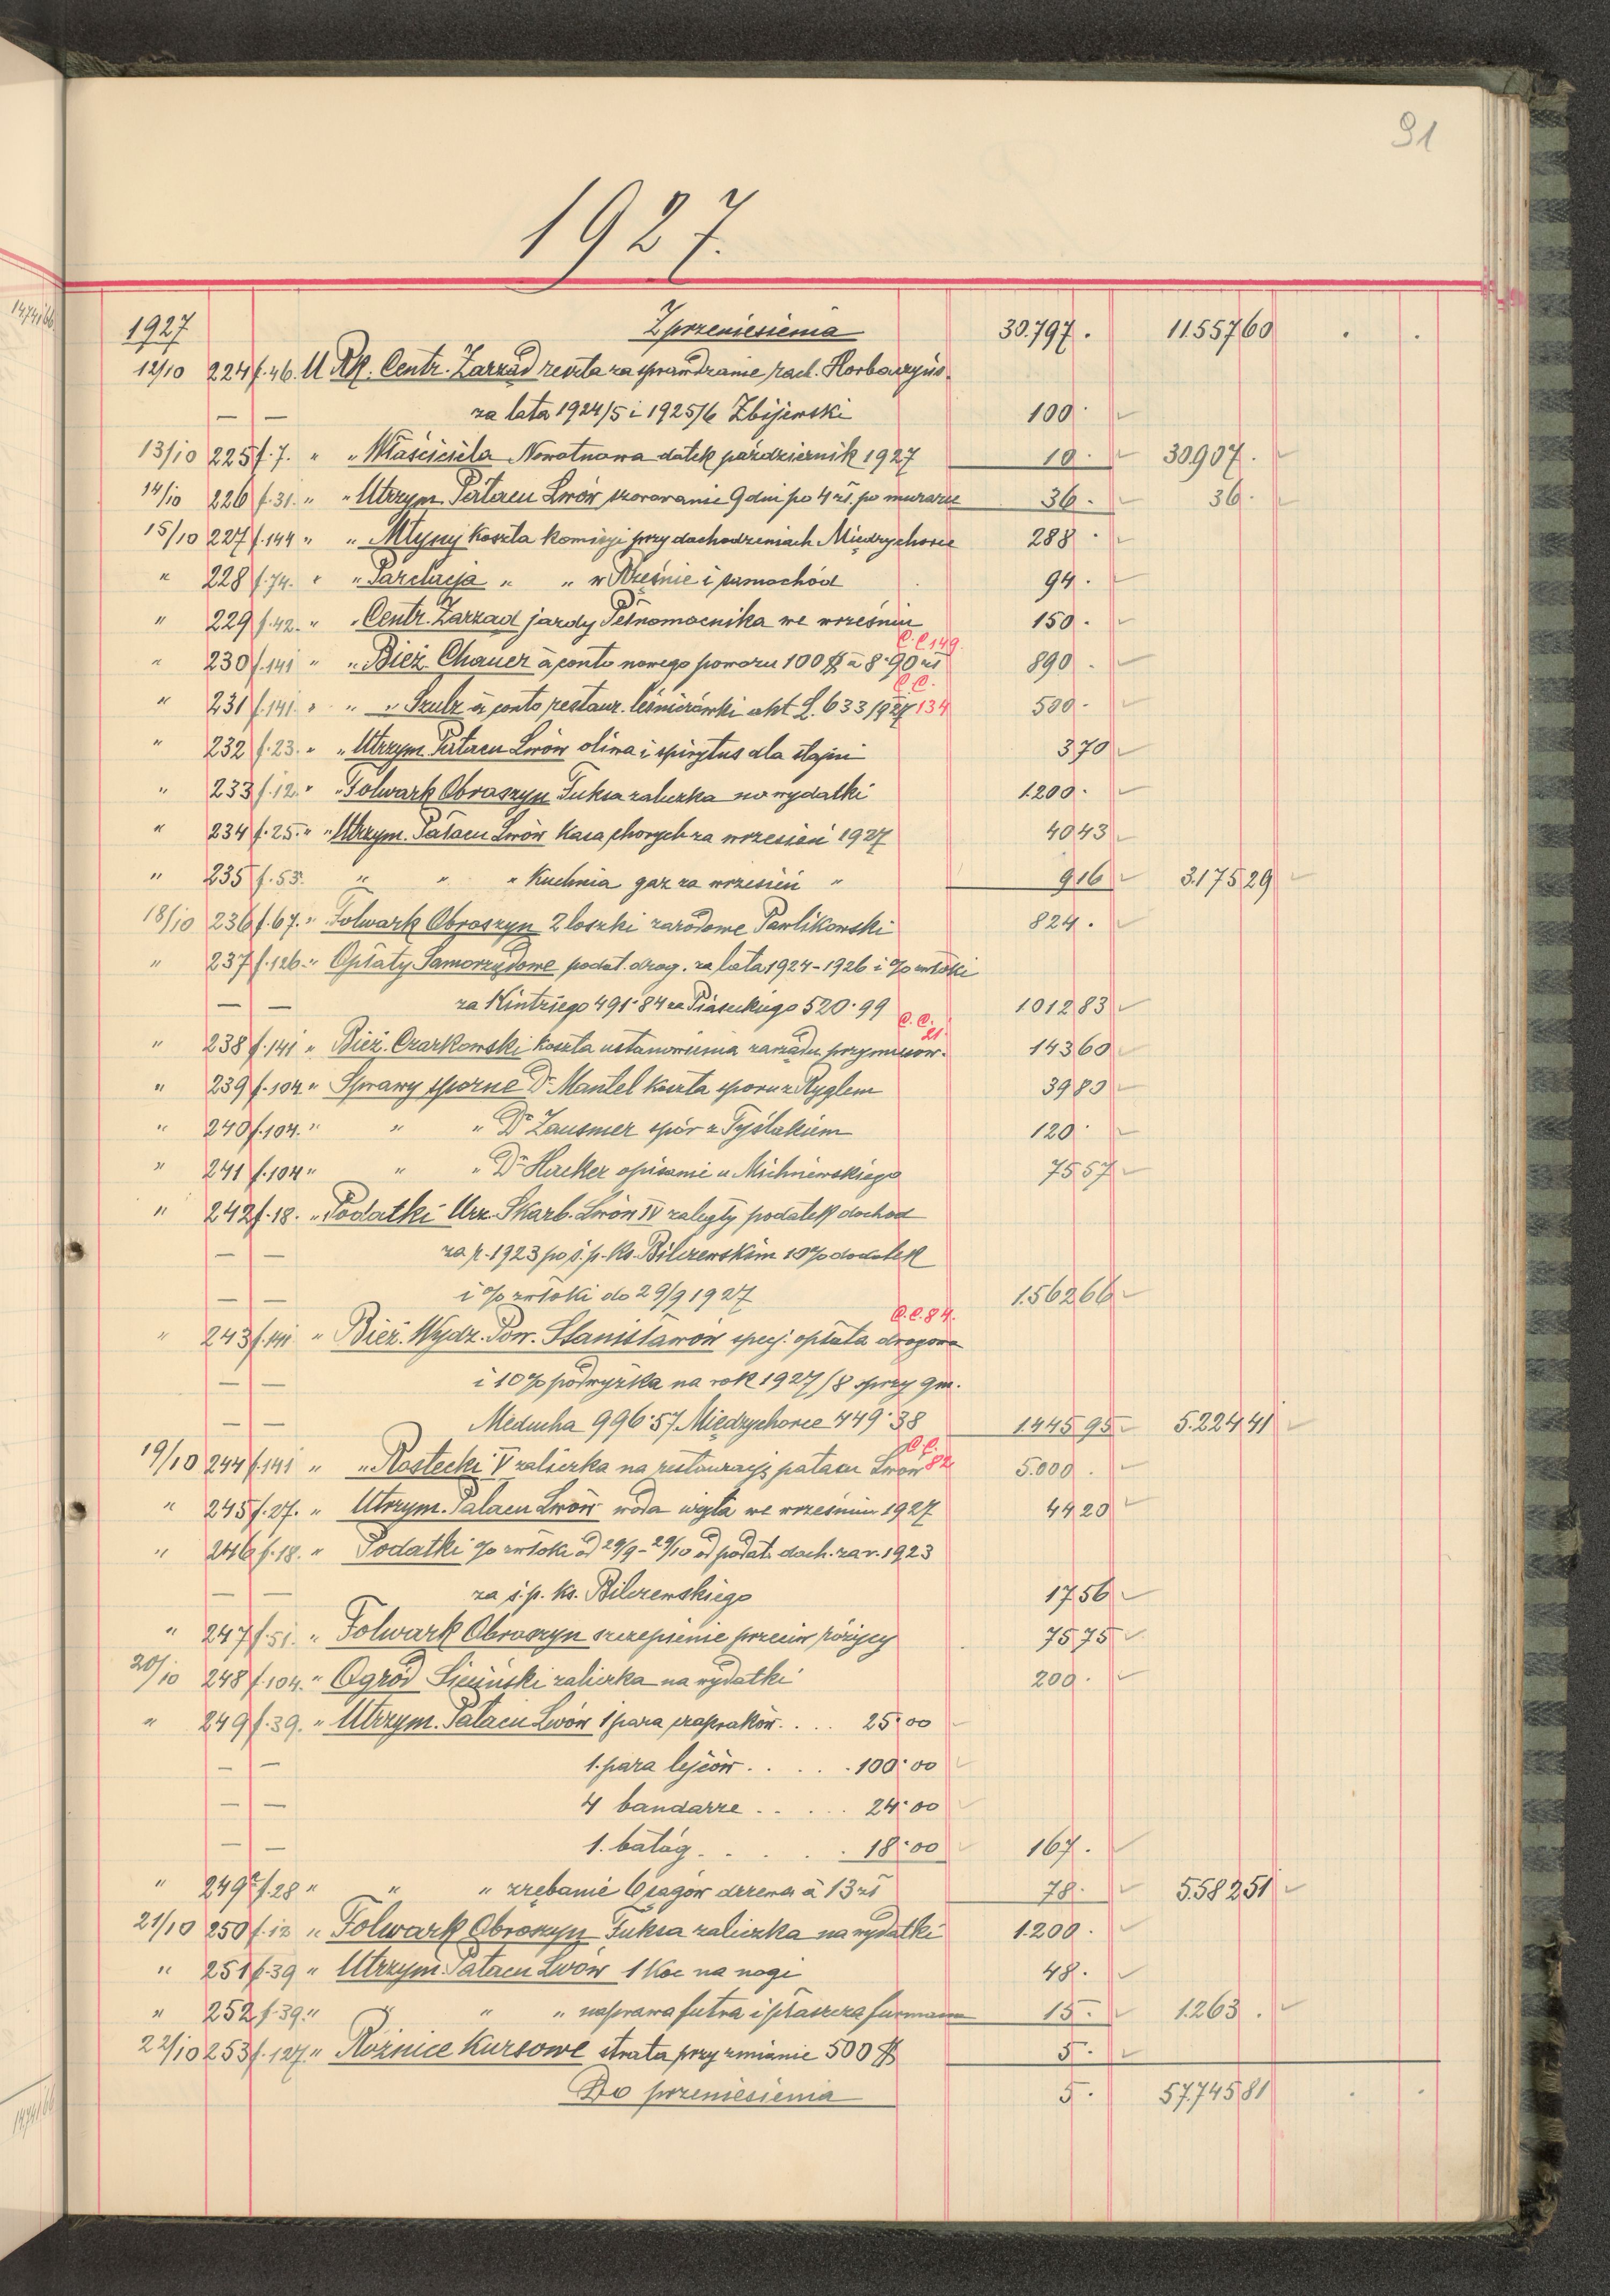 91
1927.
1927 Z przeniesienia 30.797 . 11.557 60 . .
12/10 224 f. 46. U Rk. Centr. Zarząd reszta za sprawdzanie rach.
— — za lata 1924/5 i 1925/6 Zbijewski 100 ·
13/10 225 f. 7. " " Właściciela Nowotnowa datek październik 1927 10 · 30.907 .
14/10 226 f. 31. " " Utrzym. Pałacu Lwów 9 dni po 4 zł. po murarzu 36 · 36 ·
15/10 227 f. 144 " " Młyny Koszta komisyi przy dochodzeniach Międzyhorce 288 ·
" 228 f. 74. " " Parcelacja " " w Wrześnie i samochód 94 .
" 229 f. 42. " " Centr. Zarząd jazdy Pełnomocnika we wrześniu 150 .
C.C 149.
" 230 f. 141 " " Bież. Chauer à conto nowego powozu 100 $ à 8·90 zł 890 .
C.C.
" 231 f. 141. " " " Szulz à conto restaur. leśniczówki akt L. 633/927 134 500 .
" 232 f. 23. " " Utrzym. Pałacu Lwów oliwa i spirytus dla stajni 3 70
" 233 f. 12. " " Folwark Obroszyn Fuksa zaliczka na wydatki 1.200 .
" 234 f. 25. " " Utrzym. Pałacu Lwów Kasa chorych za wrzesień 1927 40 43
" 235 f. 53. " " " Kuchnia gaz za wrzesień " 9 16 3.175 29
18/10 236 f. 67. " Folwark Obroszyn 2 loszki zarodowe Pawlikowski 824 .
" 237 f. 126. " Opłaty Samorządowe podat. drog. za lata 1924-1926 i % zwłoki
— — za Kintziego 491·84 za Piaseckiego 520·99 1.012 83
C.C. 21.
" 238 f. 141 " Bież. Czarkowski Koszta ustanowienia zarządu przymusow. 143 60
" 239 f. 104 " Sprawy sporne Dr Mantel Koszta sporu z Ryglem 39 80
" 240 f. 104. " " " Dr Zausmer spór z Tyślakiem 120 ·
" 241 f. 104 " " " Dr Hacker opisanie u Michniewskiego 75 57
" 242 f. 18. " Podatki Urz. Skarb. Lwów IV zaległy podatek dochod
— — za r. 1923 po ś.p. Ks. Bilczewskim 10% dodatek
— — i % zwłoki do 29/9 1927 1.562 66
C.C. 84.
" 243 f. 141 " Bież. Wydz. Pow. Stanisławów specj. opłata drogowa
— — i 10% podwyżka na rok 1927/8 przy gm.
— — Meducha 996·57 Międzyhorce 449·38 1.445 95 5.224 41
C.C.
19/10 244 f. 141 " " Rostecki V zaliczka na restauracyę pałacu Lwów 82 5.000 .
" 245 f. 27. " Utrzym. Pałacu Lwów woda we wrześniu 1927 44 20
" 246 f. 18. " Podatki % zwłoki od 29/9 - 29/10 od podat. doch. za r. 1923
— — za ś.p. Ks. Bilczewskiego 17 56
" 247 f. 51. " Folwark Obroszyn szczepienie przeciw różycy 75 75
20/10 248 f. 104. " Ogród Siciński zaliczka na wydatki 200 .
" 249 f. 39. " Utrzym. Pałacu Lwów 1 para . . . 25·00
— — 1. para lejców . . . . . 100·00
— — 4 bandarze . . . . . 24·00
— — 1. batóg . . . . . 18·00 167 .
" 249a f. 28 " " " zrębanie 6 sągów drzewa à 13 zł 78 · 5.582 51
21/10 250 f. 12 " Folwark Obroszyn Fuksa zaliczka na wydatki 1.200 .
" 251 f. 39 " Utrzym. Pałacu Lwów 1 Koc na nogi 48 .
" 252 f. 39. " " " " naprawa futra i płaszcza furmana 15 . 1.263 .
22/10 253 f. 127. " Różnice Kursowe strata przy zmianie 500 $ 5 ·
Do przeniesienia 5 · 57.745 81 . .